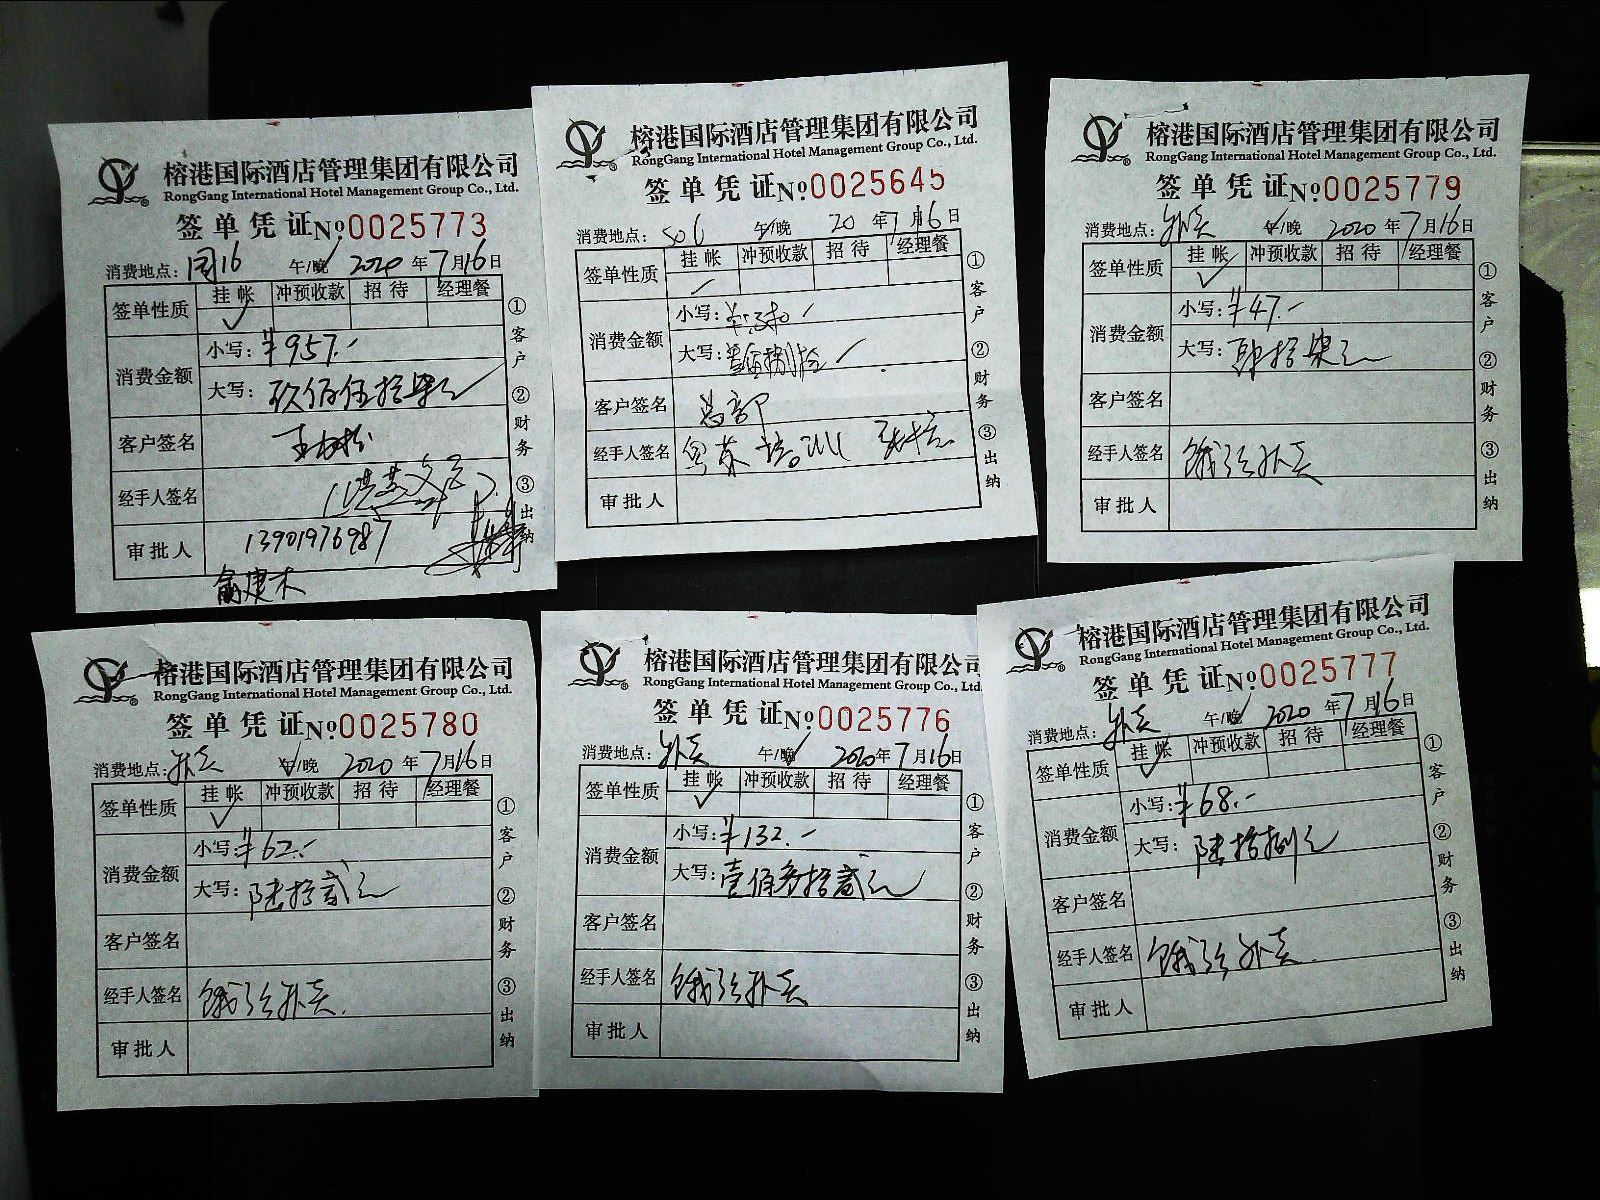 榕港国际酒店管理集团有限公司
RongGang International Hotel Management Group Co., Ltd.
签单凭证 No 0025773
消费地点: 16 午/晚 2020年7月16日
签单性质 挂帐 冲预收款 招待 经理餐
✓
消费金额 小写: ¥957.-
大写: 玖佰伍拾柒元
客户签名
经手人签名
审批人 13901976987
俞建木
①客户 ②财务 ③出纳
榕港国际酒店管理集团有限公司
RongGang International Hotel Management Group Co., Ltd.
签单凭证 No 0025645
消费地点: 午/晚 20年7月16日
签单性质 挂帐 冲预收款 招待 经理餐
消费金额 小写:
大写:
客户签名 总部
经手人签名 培训
审批人
①客户 ②财务 ③出纳
榕港国际酒店管理集团有限公司
RongGang International Hotel Management Group Co., Ltd.
签单凭证 No 0025779
消费地点: 外卖 午/晚 2020年7月16日
签单性质 挂帐 冲预收款 招待 经理餐
✓
消费金额 小写: ¥47.-
大写: 肆拾柒元
客户签名
经手人签名 饿了外卖
审批人
①客户 ②财务 ③出纳
榕港国际酒店管理集团有限公司
RongGang International Hotel Management Group Co., Ltd.
签单凭证 No 0025780
消费地点: 外卖 午/晚 2020年7月16日
签单性质 挂帐 冲预收款 招待 经理餐
✓
消费金额 小写: ¥62.-
大写: 陆拾贰元
客户签名
经手人签名 饿了外卖.
审批人
①客户 ②财务 ③出纳
榕港国际酒店管理集团有限公司
RongGang International Hotel Management Group Co., Ltd.
签单凭证 No 0025776
消费地点: 外卖 午/晚 2020年7月16日
签单性质 挂帐 冲预收款 招待 经理餐
✓
消费金额 小写: ¥132.-
大写: 壹佰叁拾贰元
客户签名
经手人签名 饿了外卖
审批人
①客户 ②财务 ③出纳
榕港国际酒店管理集团有限公司
RongGang International Hotel Management Group Co., Ltd.
签单凭证 No 0025777
消费地点: 外卖 午/晚 2020年7月16日
签单性质 挂帐 冲预收款 招待 经理餐
✓
消费金额 小写: ¥68.-
大写: 陆拾捌元
客户签名
经手人签名 饿了外卖.
审批人
①客户 ②财务 ③出纳